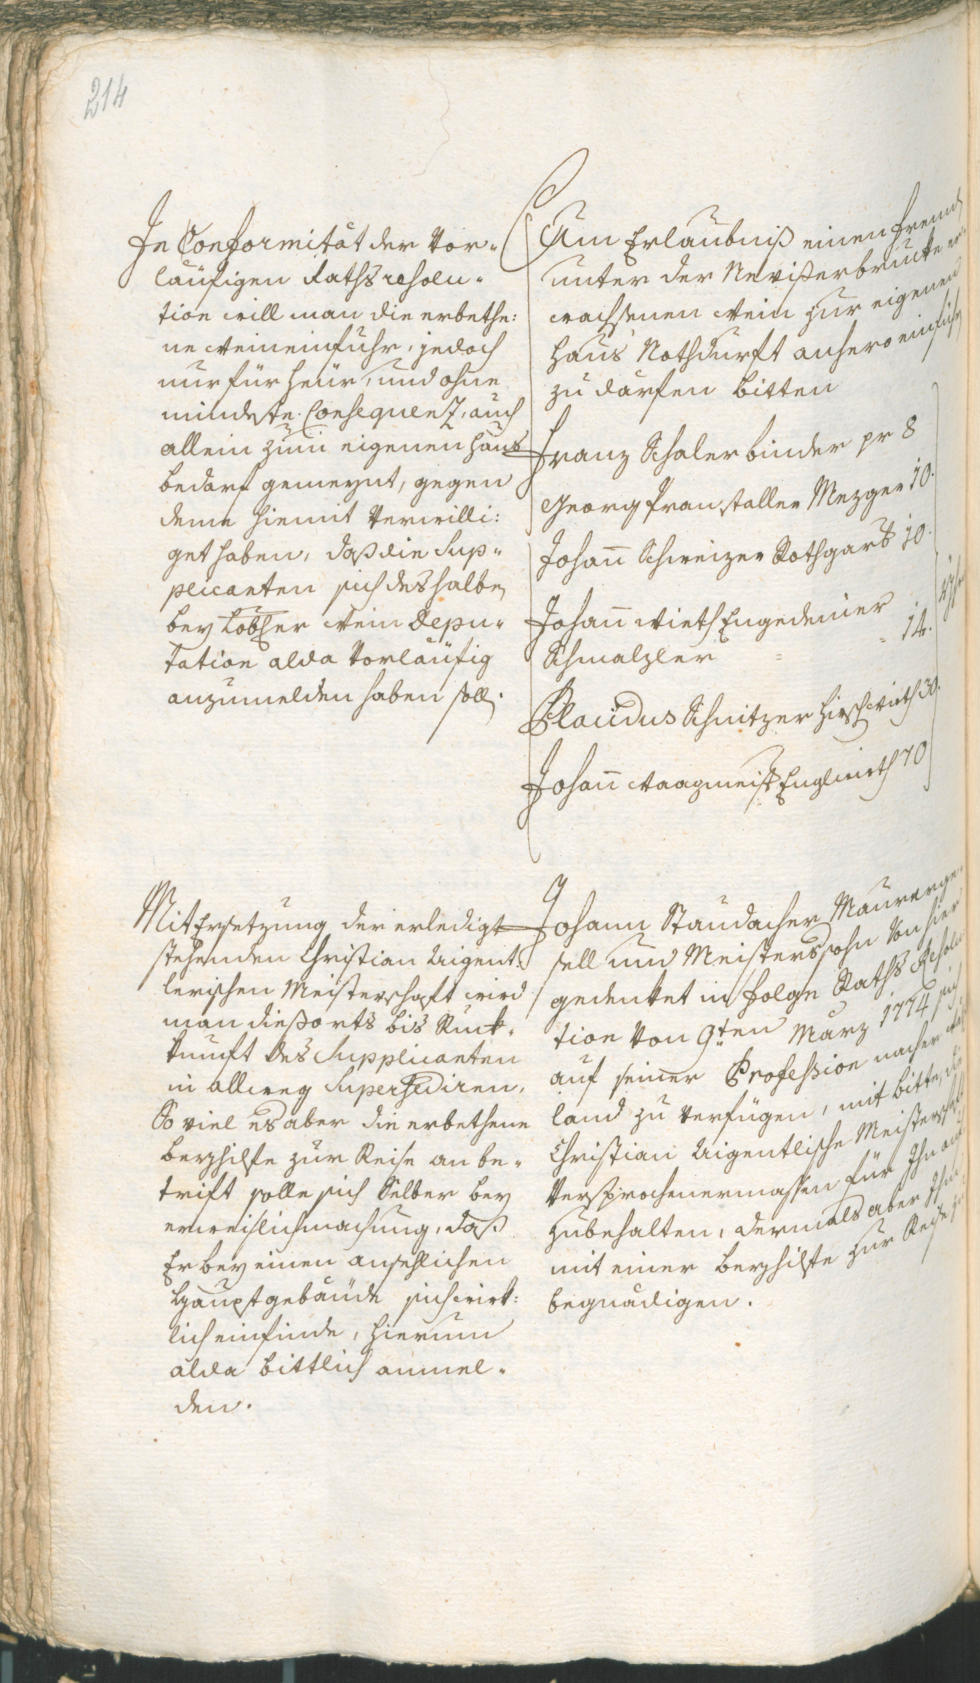 214
In Conformität der Vor-
läufigen Raths resolu-
tion will man die erbethe:
ne Weineinfuhr, jedoch
nur für heür, und ohne
mindeste Consequenz, auch
allein zum eigenen Haus
bedarf gemeynt, gegen
deme hiemit Verwilli:
get haben, daß die Sup-
plicanten sich deshalben
bey Löbl:er Wein Depu-
tation alda Vorläufig
anzumelden haben solle.
Um Erlaubniß einen fremd
unter der Neüißerbrucke er-
wachsenen Wein zur eigenen
Haus Nothdurft anhero einführ
zu dürfen bitten
Franz Schaler binder pr 8
Georg Pranstaller Mezger 10.
Johann Schweizer Rothgarb 10.
Johann Wieth Engedeiner
Schmalzler = = 14.
Ÿhr
Placidus Schnitzer Hirschwirth 30.
Johann Waagmeist Englwirth 70
Mit Ersetzung der erledigt
stehenden Christian Aigent-
lerischen Meisterschaft wird
man dießorts bis Ruck-
kunft des Supplicanten
in allweg Supersediren,
So viel es aber die erbethene
beyhilfe zur Reise anbe-
trift solle sich Selber bey
erweislichmachung, daß
Er bey einen ansehlichen
Hauptgebäude sich wirk:
lich einfinde, hierum
alda bittlich anmel-
den.
Johann Staudacher Maurerge-
sell und Meisterssohn Von hier
gedenket in folge Raths Resolu
tion Von 9ten März 1774 sich
auf seiner Profession nacher
land zu verfügen, mit bitte, die
Christian Aigentlische Meisterschaft
Versprochenermassen für Ihn auf
zubehalten, dermals aber Ihn
mit einer beyhilfe zur Reise zu
begnädigen.